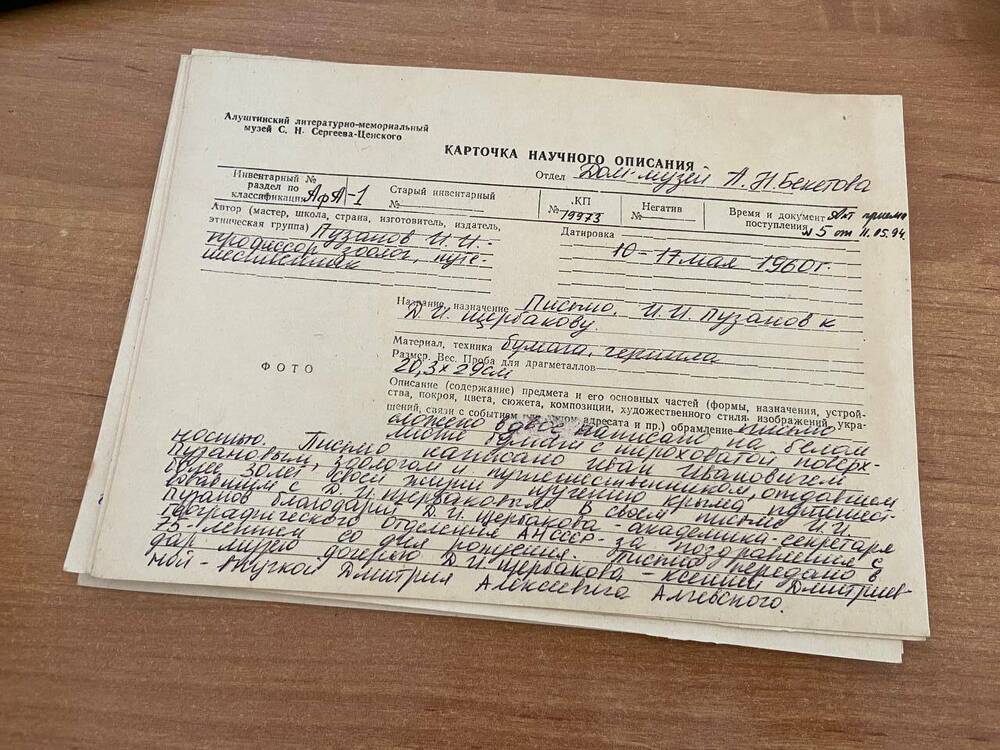 Алуштинский литературно-мемориальный
музей С. Н. Сергеева-Ценского
КАРТОЧКА НАУЧНОГО ОПИСАНИЯ
Отдел Дом-музей А. Н. Бекетова
Инвентарный №
раздел по
классификации АфА-1
Старый инвентарный
№
КП
№ 19973
Негатив
№
Время и документ Акт приема
поступления №5 от 11.05.94.
Автор (мастер, школа, страна, изготовитель, издатель,
этническая группа) Пузанов И. И.-
профессор зоолог, путе-
шественник
Датировка
10-17 мая 1960г.
Название, назначение Письмо. И. И. Пузанов к
Д. И. Щербакову.
Материал, техника бумага, чернила
Размер. Вес. Проба для драгметаллов
20,3х29см
ФОТО
Описание (содержание) предмета и его основных частей (формы, назначения, устрой-
ства, покроя, цвета, сюжета, композиции, художественного стиля, изображений, укра-
шений, связи с событием адресата и пр.) обрамление письмо
сложено вдвое написано на белом
листе бумаги с шероховатой поверх-
ностью. Письмо написано Иван Ивановичем
Пузановым, зоологом и путешественником, отдавшем
более 50 лет своей жизни изучению Крыма,
с Д. И. Щербаковым. В своем письме И. И.
Пузанов благодарит Д. И. Щербакова - академика-секретаря
географического отделения АНСССР - за поздравления с
75-летием со дня рождения. Письмо передано в
дар музею дочерью Д. И. Щербакова - Ксенией Дмитриев-
ной - внучкой Дмитрия Алексеевича Алчевского.